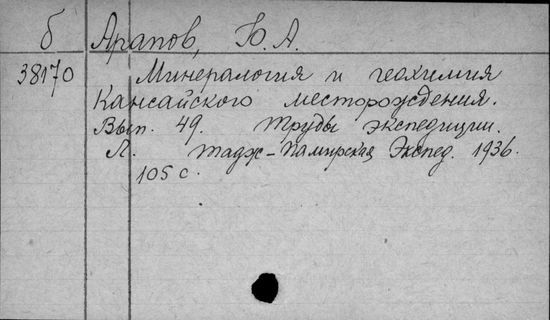 б Арапов, Ю. А.
38170 Минералогия и геохимия
Кансайского месторождения.
Вып. 49. Труды экспедиции.
Л. Тадж-Памирская Экспед. 1936.
105 с.